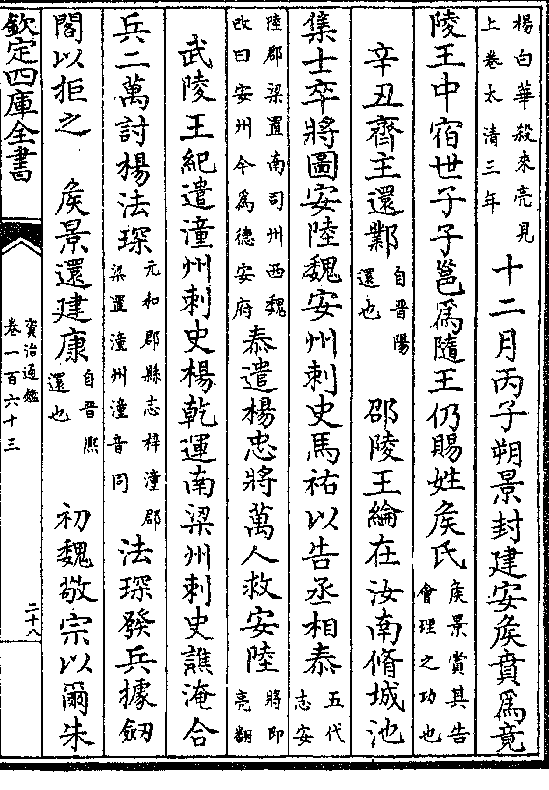 楊白華殺來亮見上卷太清三年 十二月丙子朔景封建安侯賁爲竟
陵王中宿世子子邕爲隨王仍賜姓侯氏侯景賞其告會理之功也
辛丑齊主還鄴自晉陽還也 邵陵王綸在汝南脩城池
集士卒將圖安陸魏安州刺史馬祐以告丞相泰五代志安
陸郡梁置南司州西魏改曰安州今爲德安府 泰遣楊忠將萬人救安陸將即亮翻
武陵王紀遣潼州刺史楊乾運南梁州刺史譙淹合
兵二萬討楊法琛元和郡縣志梓潼郡梁置潼州潼音同 法琛發兵據劒
閣以拒之 侯景還建康自晉熙還也 初魏敬宗以爾朱
欽定四庫全書
資治通鑑
卷一百六十三
二十八